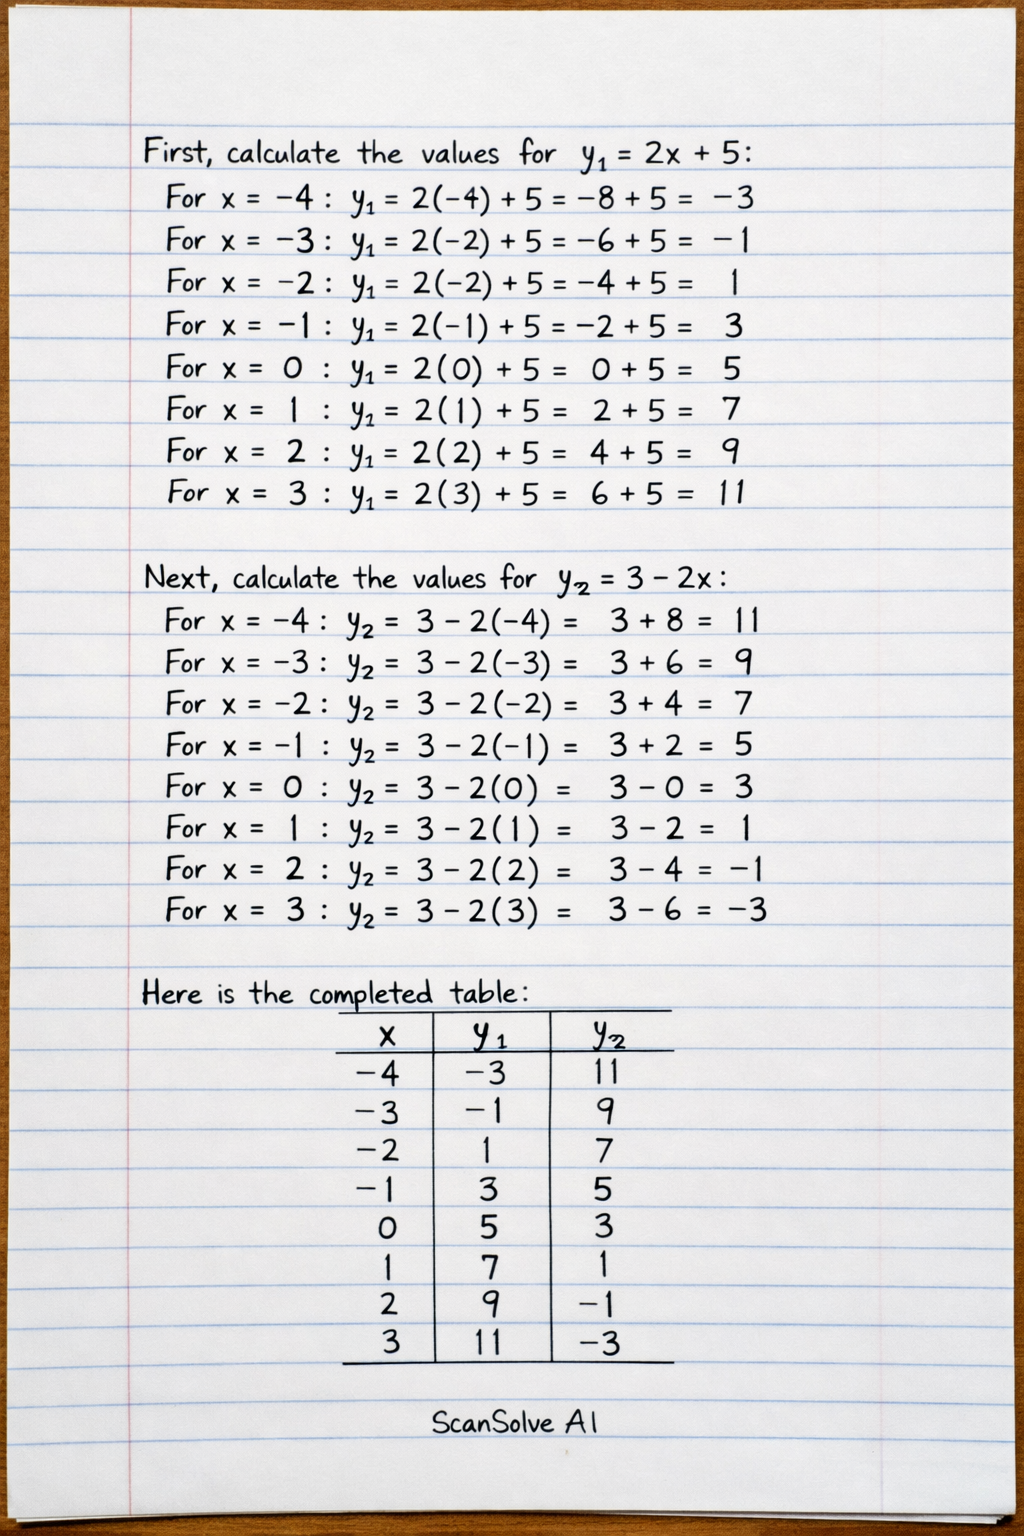 First, calculate the values for y₁ = 2x + 5:
For x = −4 : y₁ = 2(−4) + 5 = −8 + 5 = −3
For x = −3 : y₁ = 2(−2) + 5 = −6 + 5 = −1
For x = −2 : y₁ = 2(−2) + 5 = −4 + 5 = 1
For x = −1 : y₁ = 2(−1) + 5 = −2 + 5 = 3
For x = 0 : y₁ = 2(0) + 5 = 0 + 5 = 5
For x = 1 : y₂ = 2(1) + 5 = 2 + 5 = 7
For x = 2 : y₁ = 2(2) + 5 = 4 + 5 = 9
For x = 3 : y₁ = 2(3) + 5 = 6 + 5 = 11
Next, calculate the values for y₂ = 3 − 2x:
For x = −4 : y₂ = 3 − 2(−4) = 3 + 8 = 11
For x = −3 : y₂ = 3 − 2(−3) = 3 + 6 = 9
For x = −2 : y₂ = 3 − 2(−2) = 3 + 4 = 7
For x = −1 : y₂ = 3 − 2(−1) = 3 + 2 = 5
For x = 0 : y₂ = 3 − 2(0) = 3 − 0 = 3
For x = 1 : y₂ = 3 − 2(1) = 3 − 2 = 1
For x = 2 : y₂ = 3 − 2(2) = 3 − 4 = −1
For x = 3 : y₂ = 3 − 2(3) = 3 − 6 = −3
Here is the completed table:
x y₁ y₂
−4 −3 11
−3 −1 9
−2 1 7
−1 3 5
0 5 3
1 7 1
2 9 −1
3 11 −3
ScanSolve AI